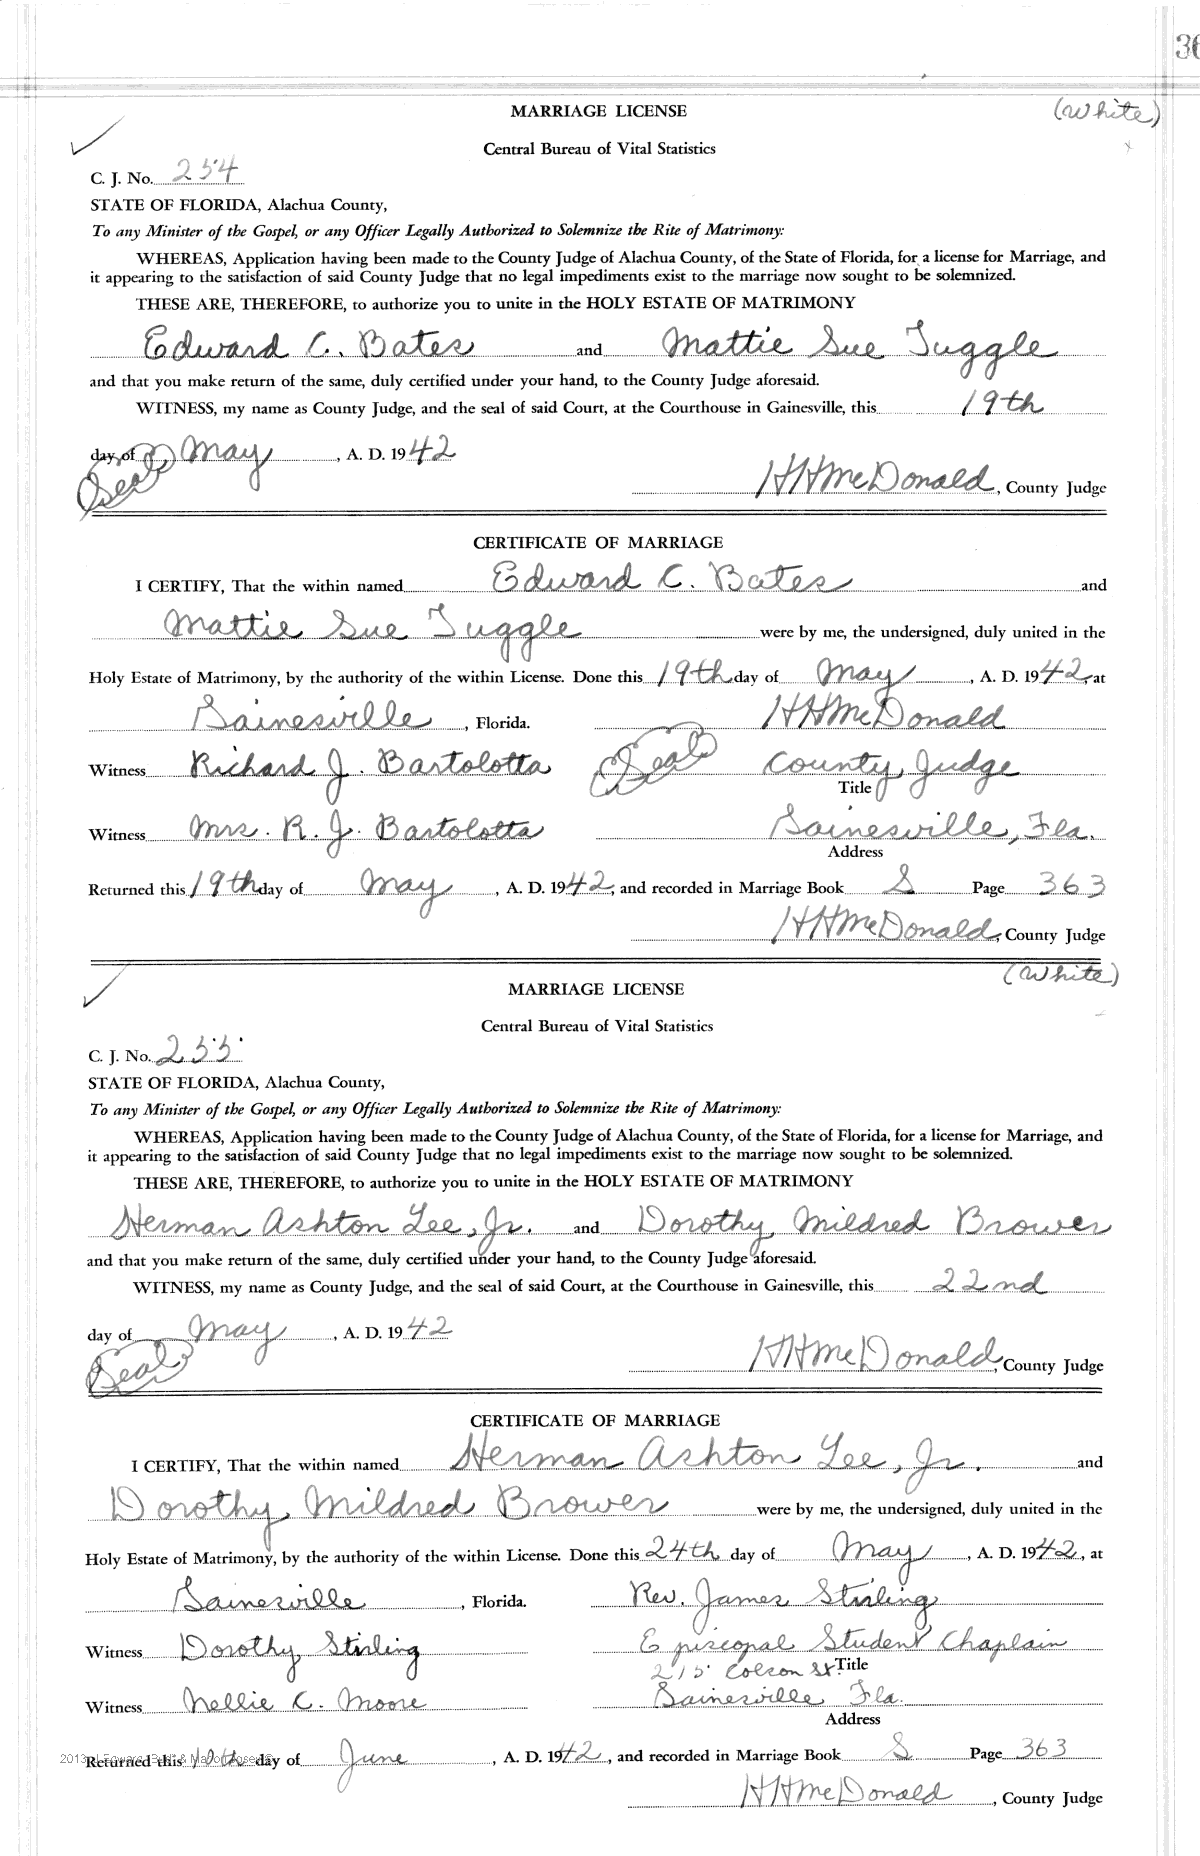 36
MARRIAGE LICENSE (White)
Central Bureau of Vital Statistics
C. J. No. 254
STATE OF FLORIDA, Alachua County,
To any Minister of the Gospel, or any Officer Legally Authorized to Solemnize the Rite of Matrimony:
WHEREAS, Application having been made to the County Judge of Alachua County, of the State of Florida, for a license for Marriage, and
it appearing to the satisfaction of said County Judge that no legal impediments exist to the marriage now sought to be solemnized.
THESE ARE, THEREFORE, to authorize you to unite in the HOLY ESTATE OF MATRIMONY
Edward C. Bates and Mattie Sue Tuggle
and that you make return of the same, duly certified under your hand, to the County Judge aforesaid.
WITNESS, my name as County Judge, and the seal of said Court, at the Courthouse in Gainesville, this 19th
day of May, A. D. 1942
(Seal) HHMcDonald, County Judge
CERTIFICATE OF MARRIAGE
I CERTIFY, That the within named Edward C. Bates and
Mattie Sue Tuggle were by me, the undersigned, duly united in the
Holy Estate of Matrimony, by the authority of the within License. Done this 19th day of May, A. D. 1942, at
Gainesville, Florida. HHMcDonald
Witness Richard J. Bartolotta (Seal) County Judge
Title
Witness Mrs. R. J. Bartolotta Gainesville, Fla.
Address
Returned this 19th day of May, A. D. 1942, and recorded in Marriage Book S Page 363
HHMcDonald, County Judge
(White)
MARRIAGE LICENSE
Central Bureau of Vital Statistics
C. J. No. 255
STATE OF FLORIDA, Alachua County,
To any Minister of the Gospel, or any Officer Legally Authorized to Solemnize the Rite of Matrimony:
WHEREAS, Application having been made to the County Judge of Alachua County, of the State of Florida, for a license for Marriage, and
it appearing to the satisfaction of said County Judge that no legal impediments exist to the marriage now sought to be solemnized.
THESE ARE, THEREFORE, to authorize you to unite in the HOLY ESTATE OF MATRIMONY
Herman Ashton Lee, Jr. and Dorothy Mildred Brower
and that you make return of the same, duly certified under your hand, to the County Judge aforesaid.
WITNESS, my name as County Judge, and the seal of said Court, at the Courthouse in Gainesville, this 22nd
day of May, A. D. 1942
(Seal) HHMcDonald, County Judge
CERTIFICATE OF MARRIAGE
I CERTIFY, That the within named Herman Ashton Lee, Jr. and
Dorothy Mildred Brower were by me, the undersigned, duly united in the
Holy Estate of Matrimony, by the authority of the within License. Done this 24th day of May, A. D. 1942, at
Gainesville, Florida. Rev. James Stirling
Witness Dorothy Stirling Episcopal Student Chaplain
215 Colson St. Title
Witness Nellie C. Moore Gainesville Fla.
Address
Returned this 10th day of June, A. D. 1942, and recorded in Marriage Book S Page 363
HHMcDonald, County Judge